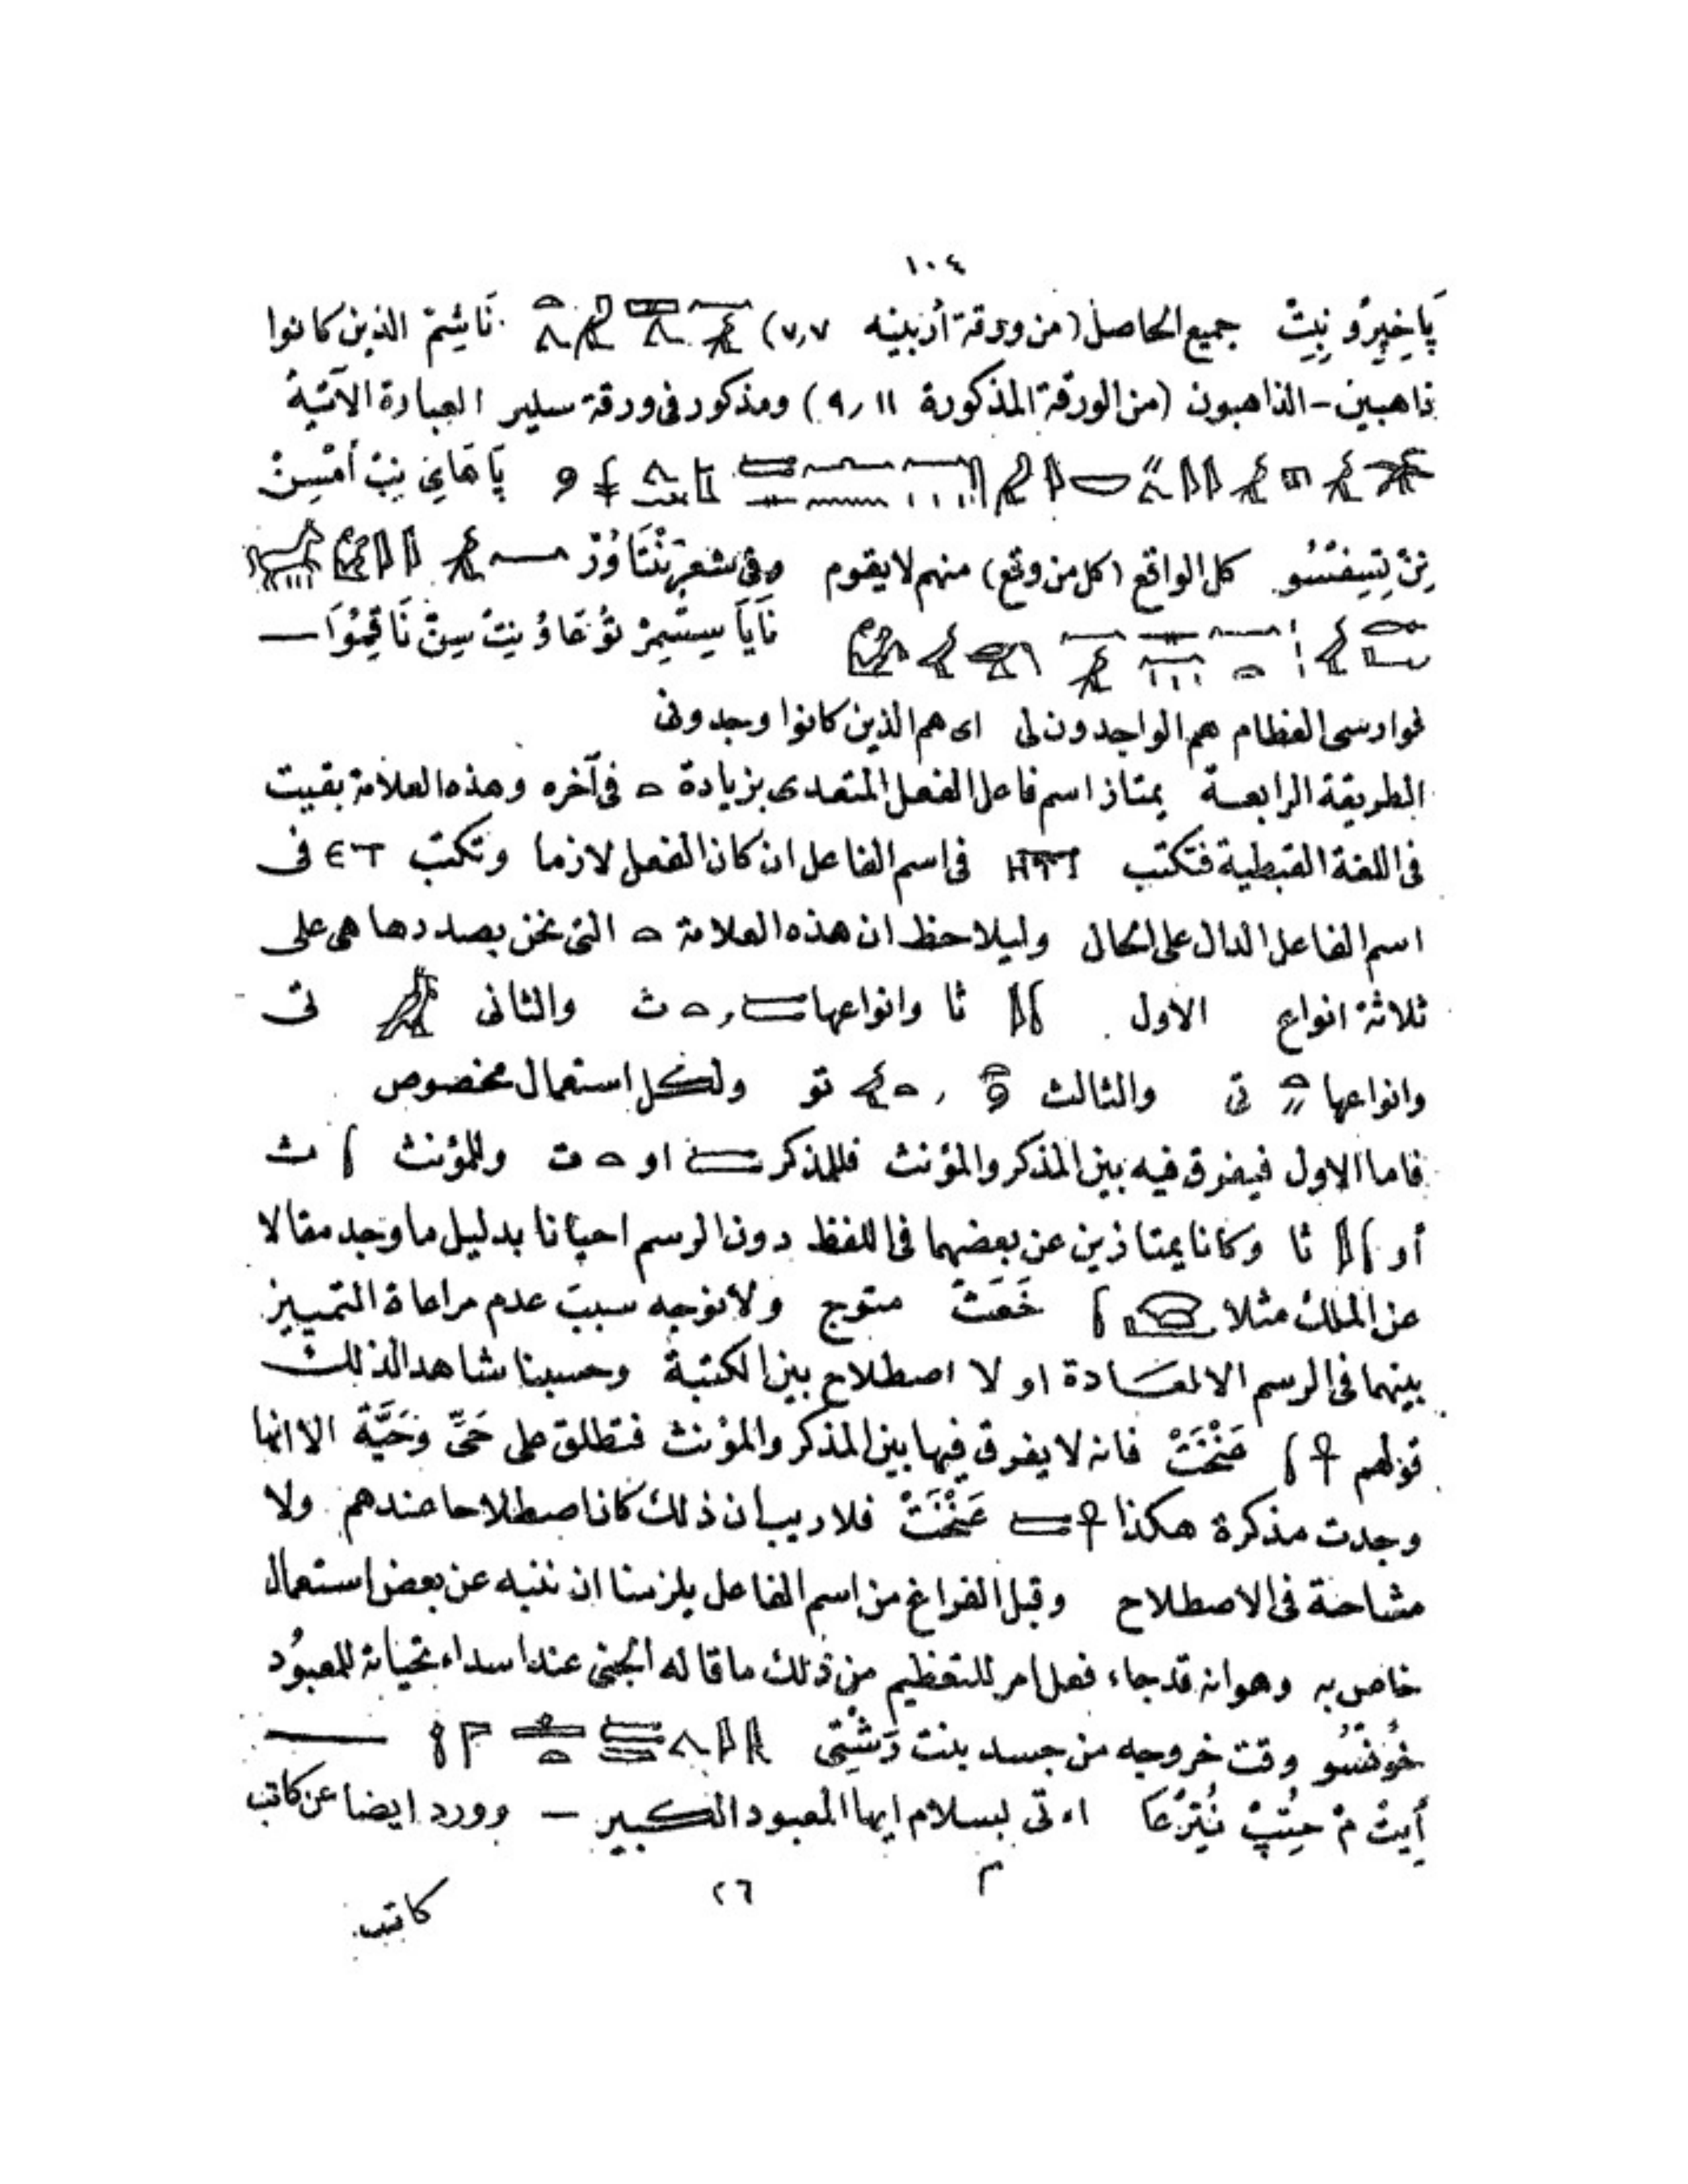 ١٠٤
پَاخِپِرُو نِبِتْ جميع الحاصل (من ورقة أربينه ٧,٧) نَاشِمْ الذين كانوا
ذاهبين - الذاهبون (من الورقة المذكورة ٩,١١) ومذكور فى ورقة سلير العبارة الآتية
پَا هَايْ نِبْ أمْسِنْ
نِنْ تِسِفسُو كل الواقع (كل من وقع) منهم لا يقوم وفى شعر پَنْتَاوُرْ
نَايَا سِسْمِرْ نِتْ سِنْ —
فوارسى العظام هم الواجدون لى اى هم الذين كانوا وجدونى
الطريقة الرابعة يمتاز اسم فاعل الفعل المتعدى بزيادة 𓏏 فى آخره وهذه العلامة بقيت
فى اللغة القبطية فتكتب فى اسم الفاعل ان كان الفعل لازما وتكتب ⲉⲧ فى
اسم الفاعل الدال على الحال وليلاحظ ان هذه العلامة 𓏏 التى نحن بصددها هى على
ثلاثة انواع الاول ثا وانواعها 𓍿 , 𓏏 ث والثانى تى
وانواعها 𓏏𓏭 تى والثالث , 𓏏𓅱 تو ولكل استعمال مخصوص
فاما الاول فيفرق فيه بين المذكر والمؤنث فللمذكر 𓍿 او 𓏏 ت وللمؤنث ث
أو ثا وكانا يمتازين عن بعضهما فى اللفظ دون الرسم احيانا بدليل ما وجد مقالا
عن الملك مثلا خَعَتْ متوج ولا نوجه سبب عدم مراعاة التمييز
بينهما فى الرسم الا لعادة او لا اصطلاح بين الكتبة وحسبنا شاهد الذلك
قولهم 𓋹 عَنْخَتْ فانه لا يفرق فيها بين المذكر والمؤنث فتطلق على حَىّ وحَيَّة الا انها
وجدت مذكرة هكذا 𓋹𓍿 عَنْخَتْ فلا ريب ان ذلك كان اصطلاحا عندهم ولا
مشاحة فى الاصطلاح وقبل الفراغ من اسم الفاعل يلزمنا ان ننبه عن بعض استعمال
خاص به وهو انه قد جاء فعل امر للتعظيم من ذلك ما قاله الجنى عند اسداء تحياته للمعبود
خُونْسُو وقت خروجه من جسد بنت رَشْتِى —
أيِتْ مْ حِتِپْ نُتِرْعَا اءتى بسلام ايها المعبود الكبير — وورد ايضا عن كاتب
م ٢٦
كاتب